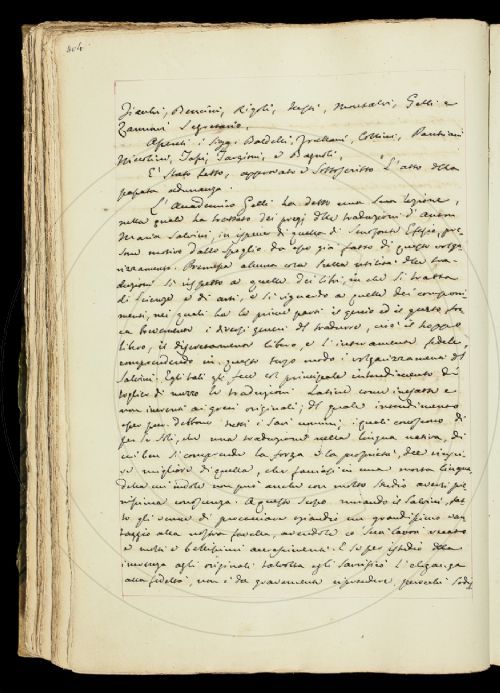 Bencini, Rigoli, Montalvi, Gelli e
Zannoni Segretario.
Assenti i Sigg. Baldelli, Collini,
Niccolini, Targioni, e Bagnoli.
E' stato letto, approvato e sottoscritto l'atto della
passata adunanza.
L'Accademico Gelli ha detto una sua lezione,
nella quale ha trattato dei pregj delle traduzioni d'Anton
Maria Salvini, in ispecie di quella di Senofonte Efesio, pre-
so ne motivo dallo spoglio da esso già fatto di questo volga-
rizzamento. Premessa alcuna cosa sulla utilità delle tra-
duzioni sì rispetto a quelle dei libri, in che si tratta
di scienze e di arti, e sì riguardo a quelle dei componi-
menti, nei quali ha le prime parti il genio ed il gusto, toc-
ca brevemente i diversi generi di tradurre, cioè il troppo
libero, il discretamente libero, e l'interamente fedele,
comprendendo in questo terzo modo i volgarizzamenti del
Salvini. Egli tali gli fece col principale intendimento di
togliere di mezzo le traduzioni latine come inesatte e
non inerenti ai greci originali; del quale intendimento
saper gren debbono tutti i savi uomini, i quali conoscono di
per se soli, che una traduzione nella lingua nativa, di
cui ben si comprende la forza e la proprietà, dee riusci-
re migliore di quella, che facciasi in una morta lingua,
della cui indole non puossi anche con molto studio aversi pie-
nissima conoscenza. A questo scopo mirando il Salvini, fat-
to gli venne di procacciare eziandio un grandissimo van-
taggio alla nostra favella, avendole co' suoi lavori recato
e molti e bellissimi accrescimenti. E se per istudio della
inerenza agli originali talvolta egli sacrificò l'eleganza
alla fedeltà, non è da gravemente riprendere, perciocchè